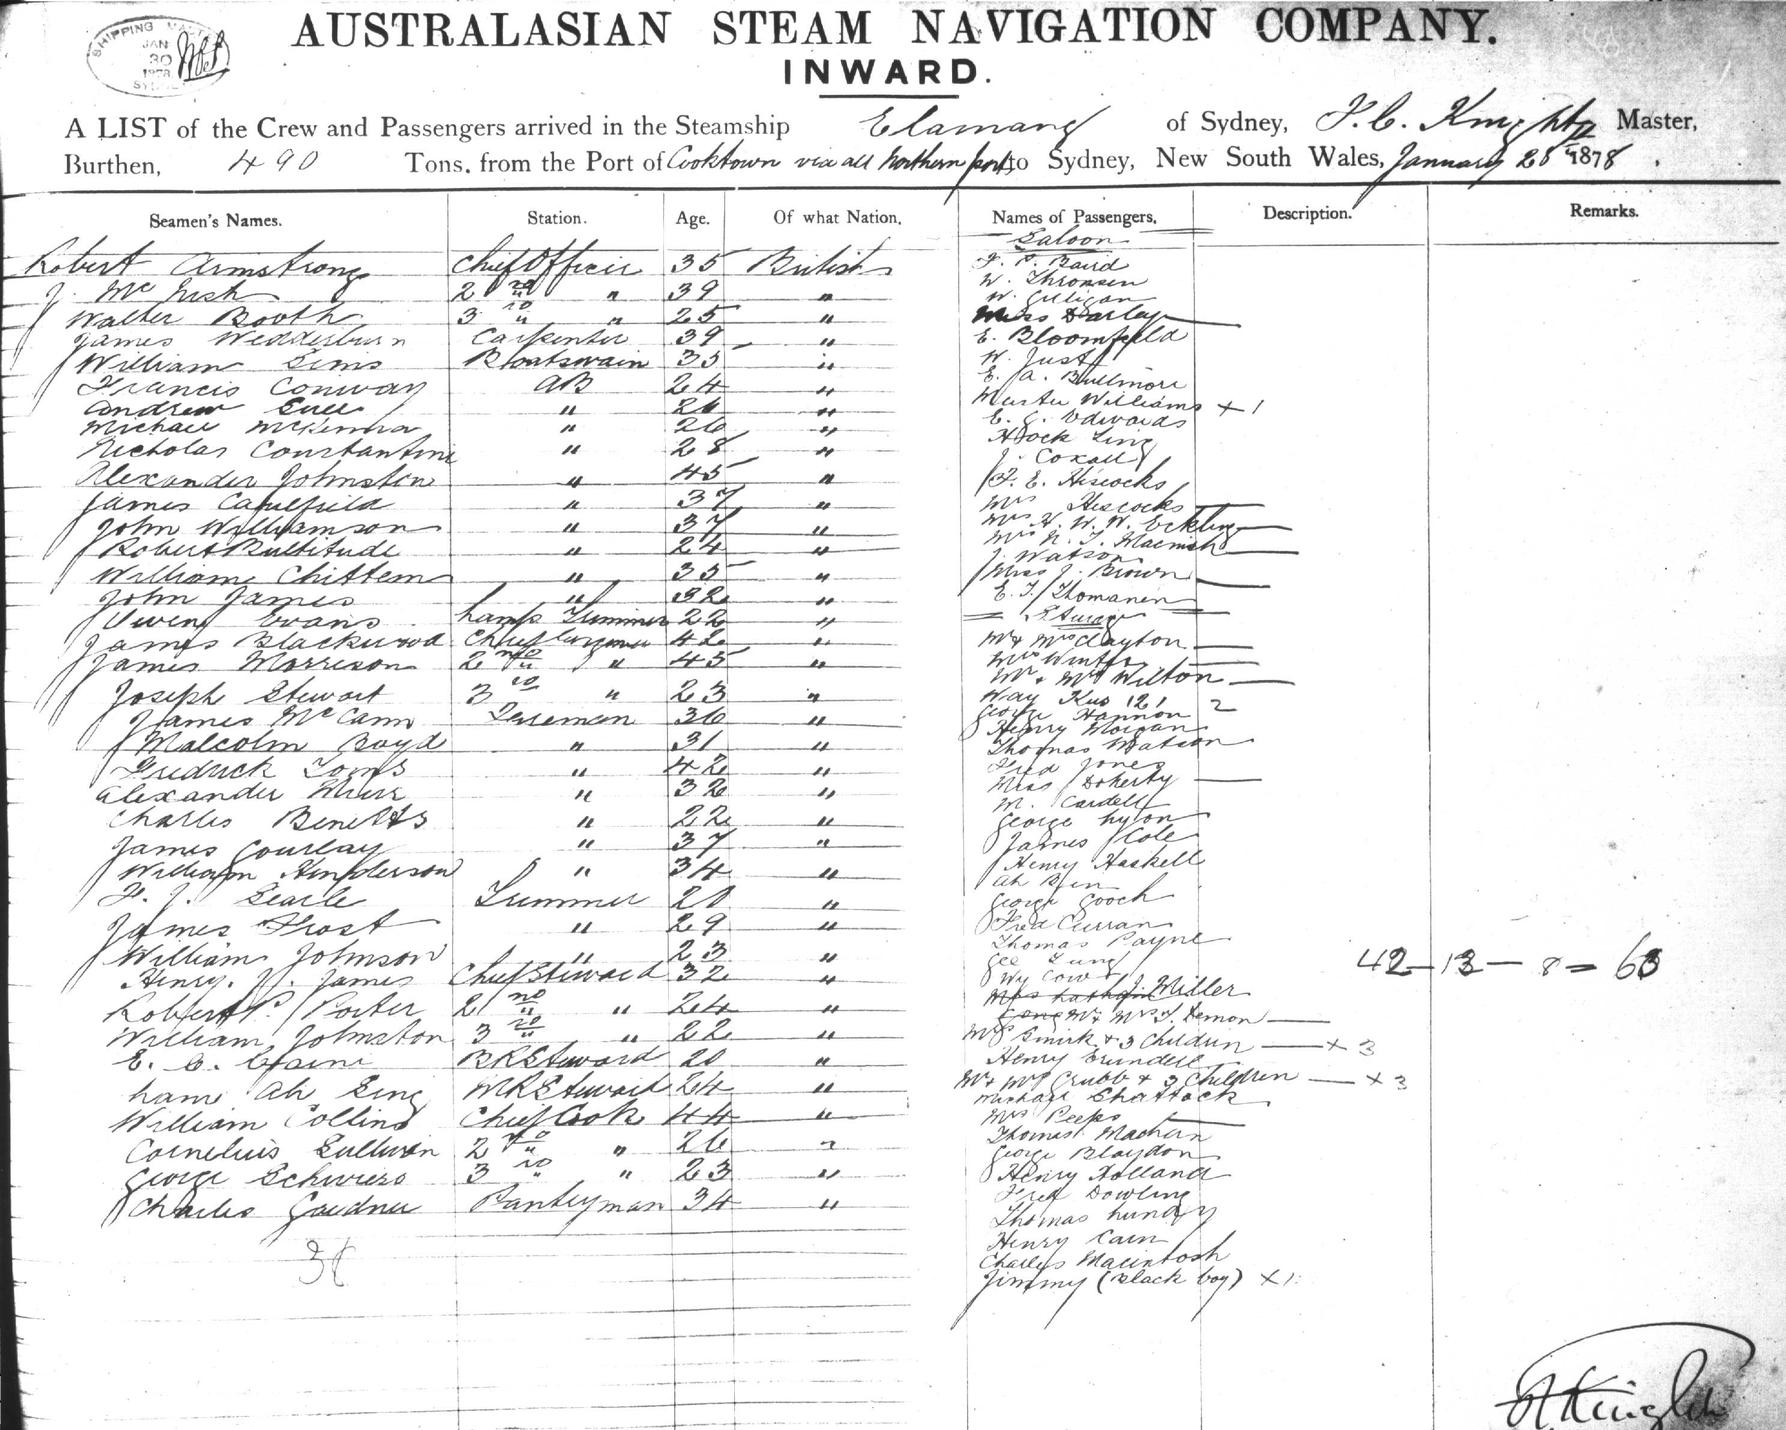 SHIPPING MASTER
JAN
30
1878
SYDNEY
AUSTRALASIAN STEAM NAVIGATION COMPANY.
INWARD.
A LIST of the Crew and Passengers arrived in the Steamship Elamang of Sydney, Master,
Burthen, 490 Tons. from the Port of Cooktown via all Northern ports to Sydney, New South Wales, January 28th 1878.
Seamen's Names. Station. Age. Of what Nation.
Robert Armstrong Chief Officer 35 British
J. McLish 2nd " 39 "
Walter Booth 3rd " 25 "
James Wedderburn Carpenter 39 "
William Sims Boatswain 35 "
Francis Conway AB 24 "
Andrew " "
Michael McKenna " 26 "
Nicholas Constantine " 28 "
Alexander Johnston " 45 "
James Caulfield " 37 "
John Williamson " 37 "
Robert Bultitude " 24 "
William Chittem " 35 "
John James " 32 "
Owen Evans Lamp Trimmer 22 "
James Blackwood Chief 42 "
James Morrison 2nd " 45 "
Joseph Stewart 3rd " 23 "
James McCann Fireman 36 "
Malcolm Boyd " 31 "
Fredrick Toms " 42 "
Alexander Muir " 32 "
Charles Benetts " 22 "
James Gourlay " 37 "
William Henderson " 34 "
F. J. Searle Trimmer 20 "
James Frost " 29 "
William Johnson " 23 "
Henry. J. James Chief Steward 32 "
Robert P. Porter 2nd " 24 "
William Johnston 3rd " 22 "
E. C. BR Steward 20 "
Ham Ah Sing MR Steward 24 "
William Collins Chief Cook 44 "
Cornelius Sullivan 2nd " 26 "
George Schwiers 3rd " 23 "
Charles Gardner Pantryman 34 "
38
Names of Passengers. Description. Remarks.
Saloon
F. P. Baird
W. Thronsen
W. Gilligan
Miss Darley
E. Bloomfield
W. Just
E. A. Bullmore
Master Williams × 1
E. G. Edwards
Hock Ling
J. Coxall
F. E. Hiscocks
Mrs Hiscocks
Mrs H. W. W. Eckling
Mrs N. T. Macnish
J. Watson
Miss J. Brown
E. F. Thomanen
Steerage
Mr & Mrs Clayton
Mrs Winter
Mr & Mrs Wilton
Way Kus (2) 2
George Hannon
Henry Morgan
Thomas Watson
Fred Jones
Miss Doherty
M. Cardell
George Lyton
James Cole
Henry Haskell
Ah Bin
George Gooch
Fred Curran
Thomas Payne
Gee Lung
Wy Cow
J. Miller
42 — 13 — 8 = 63
Mr & Mrs J. Hemon
Mrs Smirk & 3 Children × 3
Henry Trundell
Mr & Mrs Grubb & 3 Children × 3
Michael Shattock
Mrs Peeps
Thomas Machan
George Blaydon
Henry Holland
Fred Dowling
Thomas Lundy
Henry Cain
Charles Macintosh
Jimmy (Black boy) × 1